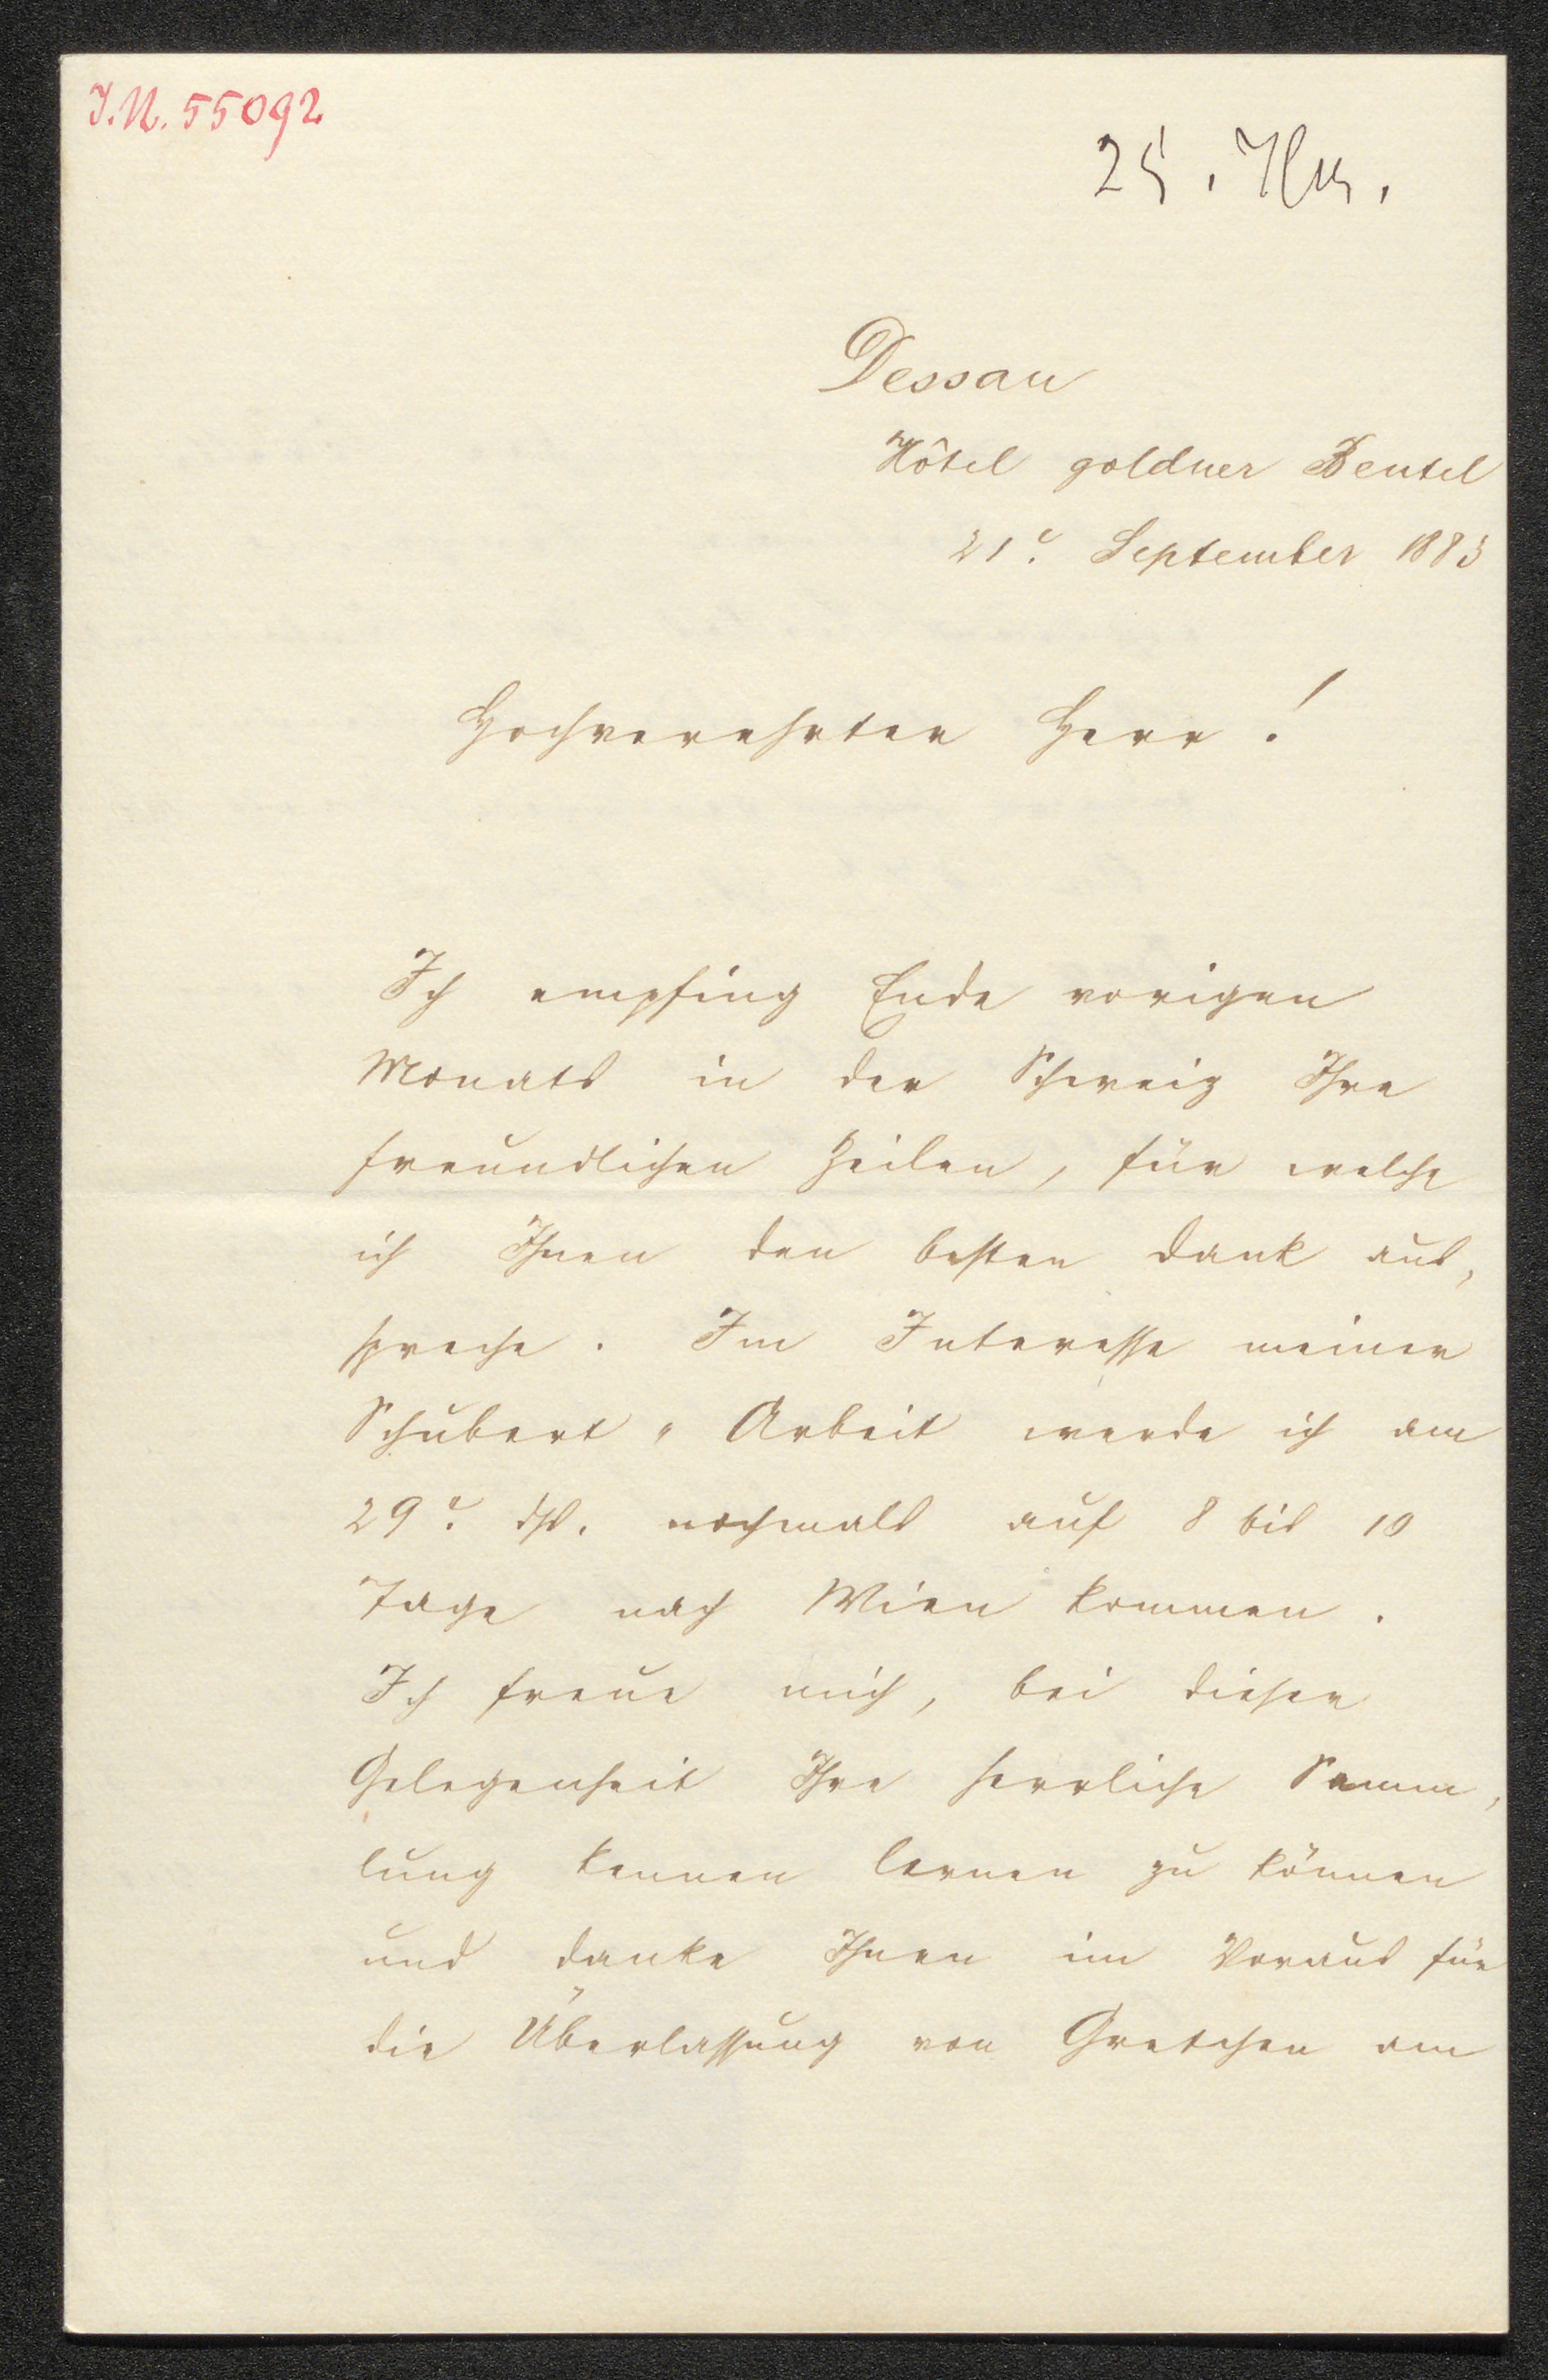 J.N. 55092
Dessau
Hôtel goldner Beutel
21. September 1883
Hochverehrter Herr!
Ich empfing Ende vorigen
Monats in der Schweiz Ihre
freundlichen Zeilen, für welche
ich Ihnen den besten Dank aus-
spreche. Im Interesse meiner
Schubert-Arbeit werde ich am
29. dss. nochmals auf 8 bis 10
Tage nach Wien kommen.
Ich freue mich, bei dieser
Gelegenheit Ihre herrliche Samm-
lung kennen lernen zu können
und danke Ihnen im Voraus für
die Überlassung von Gretchen am